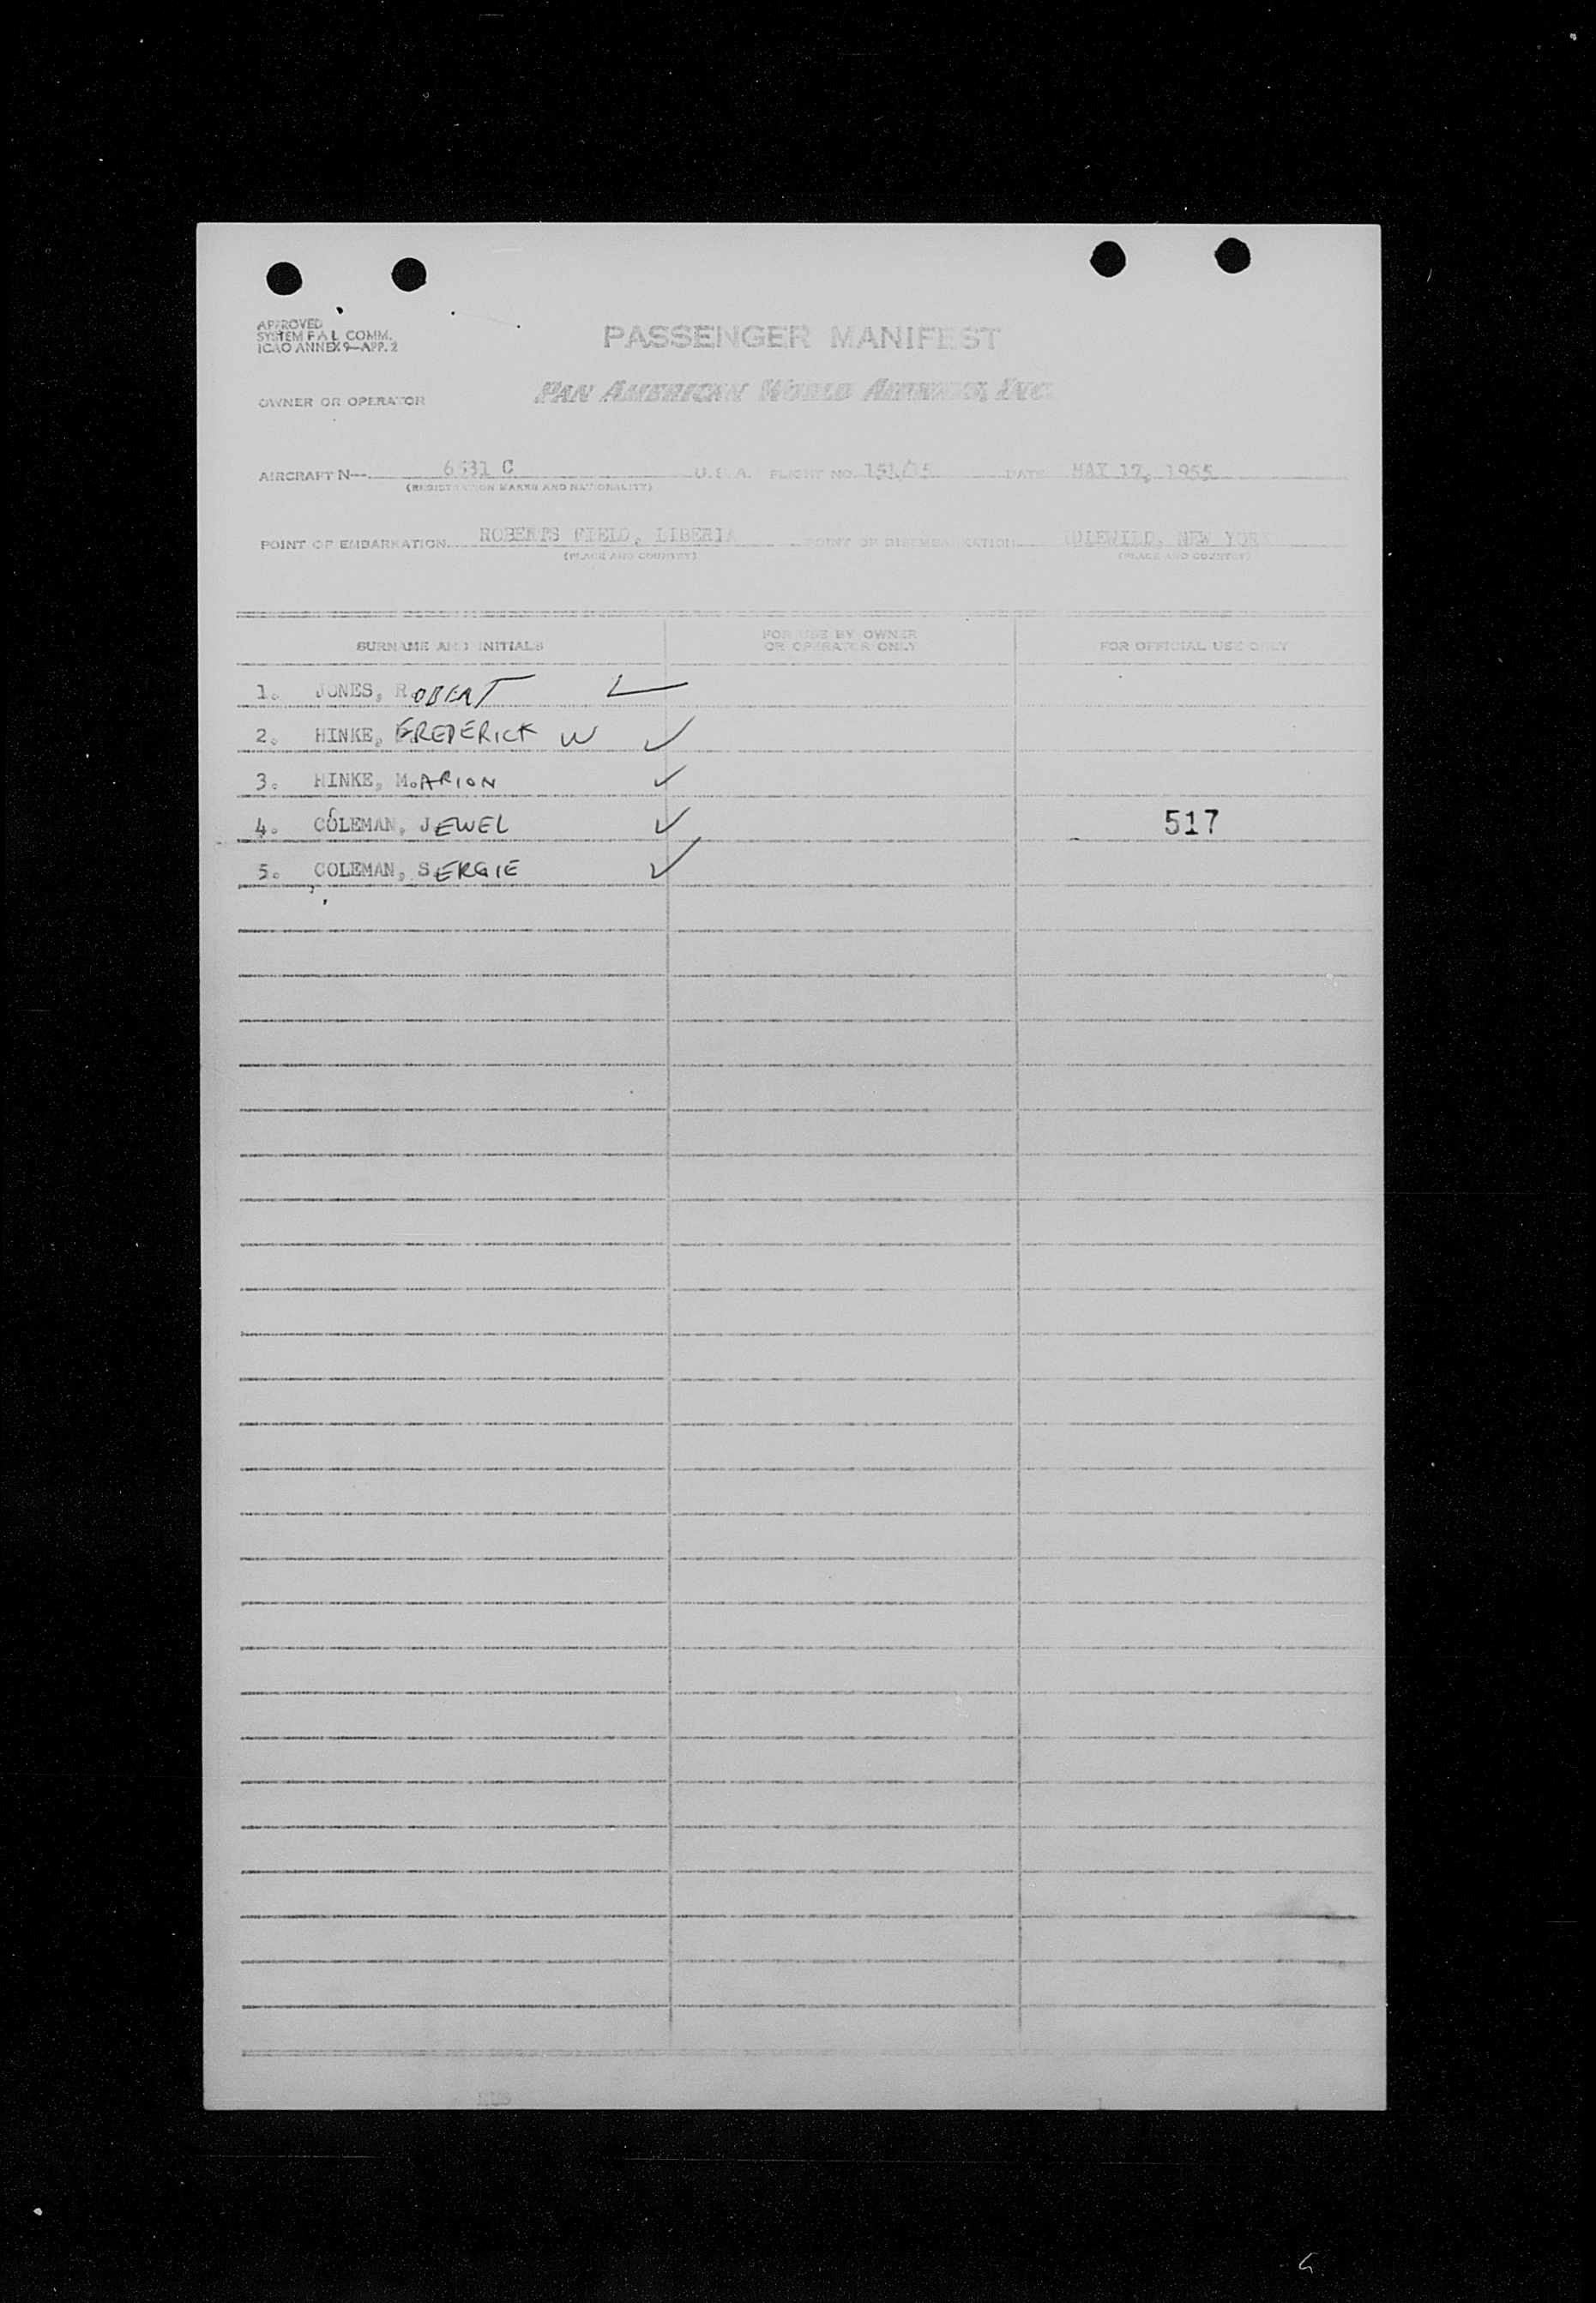 APPROVED
SYSTEM F A L COMM.
ICAO ANNEX 9—APP. 2
PASSENGER MANIFEST
OWNER OR OPERATOR
PAN AMERICAN WORLD AIRWAYS, INC.
AIRCRAFT N— 6531 C U.S.A. FLIGHT NO. 151/15 DATE MAY 17, 1955
(REGISTRATION MARKS AND NATIONALITY)
POINT OF EMBARKATION ROBERTS FIELD, LIBERIA POINT OF DISEMBARKATION IDLEWILD, NEW YORK
(PLACE AND COUNTRY) (PLACE AND COUNTRY)
SURNAME AND INITIALS FOR USE BY OWNER OR OPERATOR ONLY FOR OFFICIAL USE ONLY
1. JONES, ROBERT
2. HINKE, FREDERICK W
3. HINKE, M.ARION
4. COLEMAN, JEWEL 517
5. COLEMAN, SERGIE